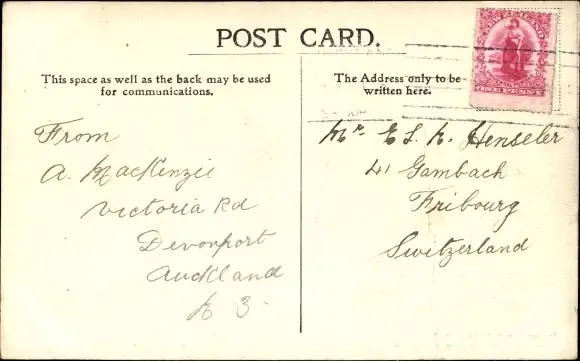 POST CARD.
This space as well as the back may be used
for communications.
The Address only to be
written here.
NEW ZEALAND
ONE PENNY
From
A. MacKenzie
Victoria Rd
Devonport
Auckland
N 3
Mr E L. N. Henseler
41 Gambach
Fribourg
Switzerland